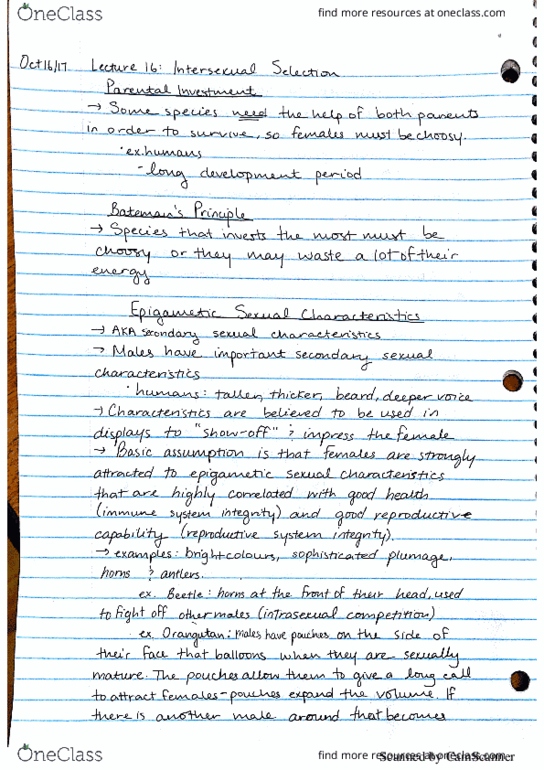 OneClass
find more resources at oneclass.com
Oct 16/17 Lecture 16: Intersexual Selection
Parental Investment
→ Some species need the help of both parents
in order to survive, so females must be choosy.
· ex. humans
- long development period
Bateman's Principle
→ Species that invests the most must be
choosy or they may waste a lot of their
energy
Epigametic Sexual Characteristics
→ AKA secondary sexual characteristics
→ Males have important secondary sexual
characteristics
· humans: taller, thicker, beard, deeper voice
→ Characteristics are believed to be used in
displays to "show-off" & impress the female
→ Basic assumption is that females are strongly
attracted to epigametic sexual characteristics
that are highly correlated with good health
(immune system integrity) and good reproductive
capability (reproductive system integrity).
→ examples: bright colours, sophisticated plumage,
horns & antlers.
ex. Beetle: horns at the front of their head, used
to fight off other males (intrasexual competition)
ex. Orangutan: males have pouches on the side of
their face that balloons when they are sexually
mature. The pouches allow them to give a long call
to attract females - pouches expand the volume. If
there is another male around that becomes
OneClass
find more resources at oneclass.com
Scanned by CamScanner